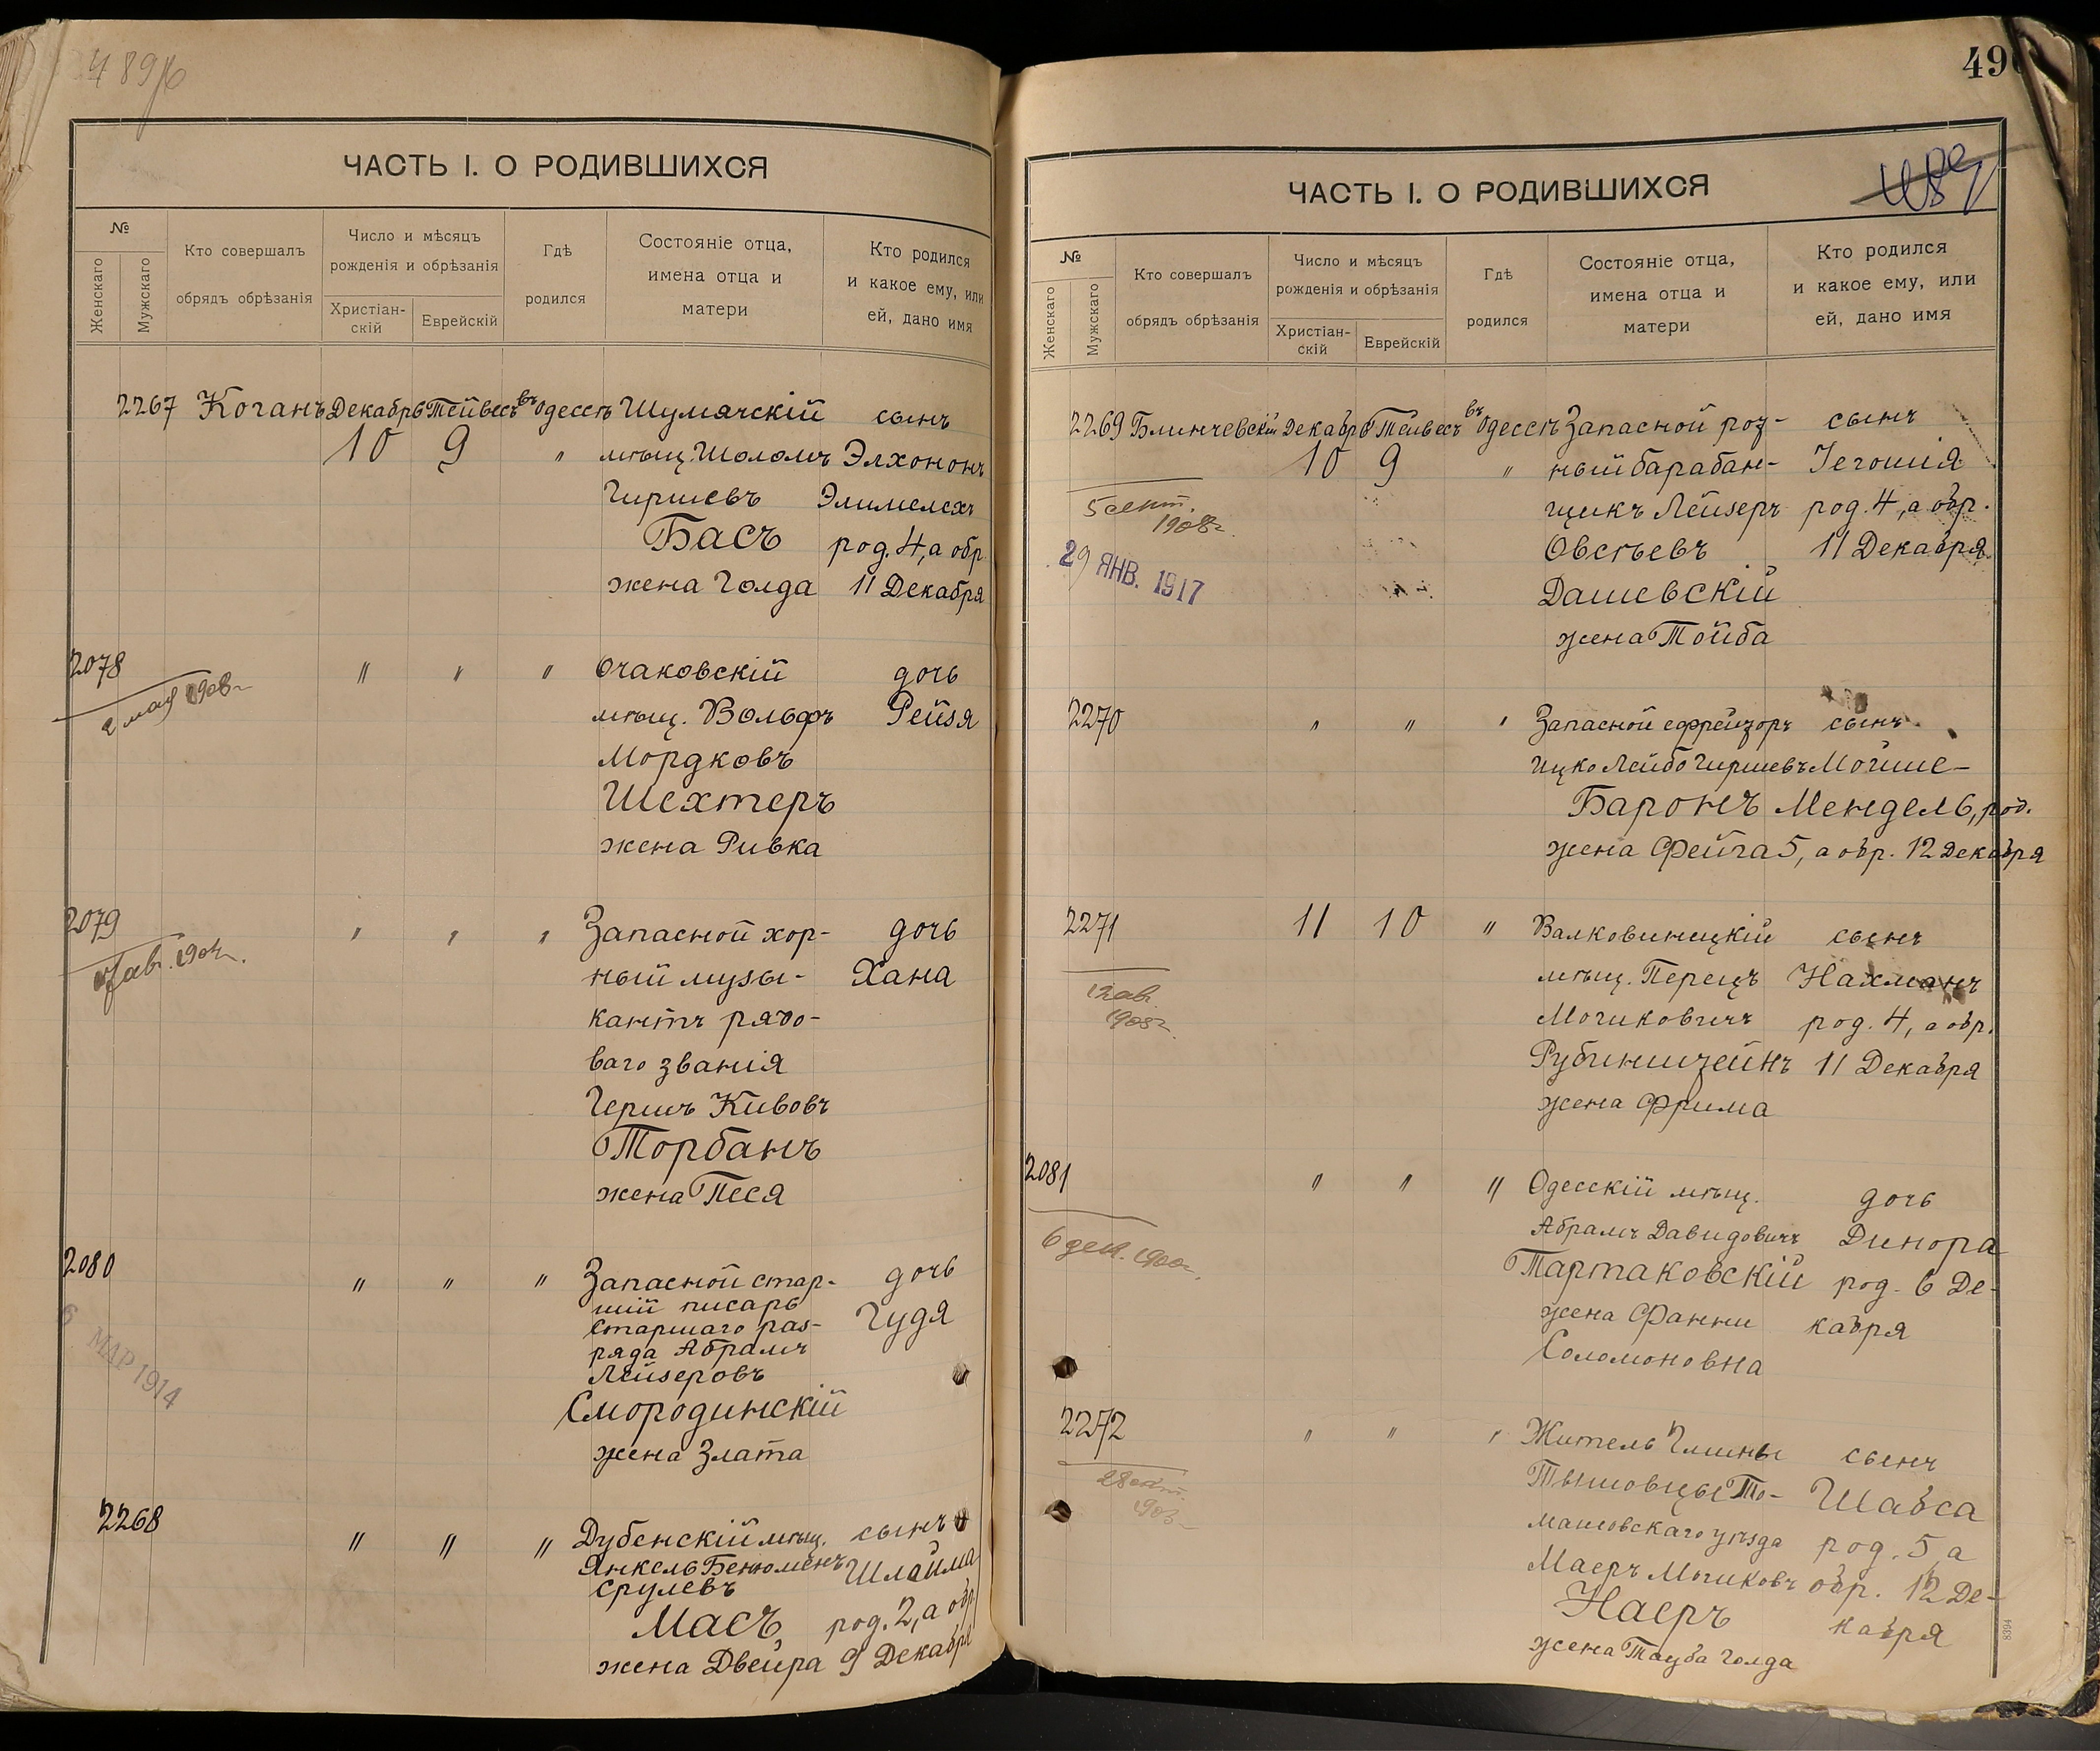 489/б
ЧАСТЬ I. О РОДИВШИХСЯ
№
Женскаго
Мужскаго
Кто совершалъ
обрядъ обрѣзанія
Число и мѣсяцъ
рожденія и обрѣзанія
Христіан-
скій
Еврейскій
Гдѣ
родился
Состояніе отца,
имена отца и
матери
Кто родился
и какое ему, или
ей, дано имя
2267 Коганъ Декабрь Тейвесъ въ Одессѣ Шумячскій сынъ
10 9 " мѣщ. Шоломъ Элхононъ
Гиршевъ Элимелехъ
Басъ род. 4, а обр.
жена Голда 11 Декабря
2078 " " " Очаковскій дочь
2 мая 1908 г.
мѣщ. Вольфъ Рейзя
Мордковъ
Шехтеръ
жена Ривка
2079 " " " Запасной хор- дочь
авг. 190
ный музы- Хана
кантъ рядо-
ваго званія
Гершъ Кивовъ
Торбанъ
жена Песя
2080 " " " Запасной стар- дочь
6 МАР 1914
шій писарь Гудя
старшаго раз-
ряда Абрамъ
Лейзеровъ
Смородинскій
жена Злата
2268 " " " Дубенскій мѣщ. сынъ
Янкель Бенюменъ Шлайма
Срулевъ
Масъ, род. 2, а обр.
жена Двейра 9 Декабря
490
489
ЧАСТЬ I. О РОДИВШИХСЯ
№
Женскаго
Мужскаго
Кто совершалъ
обрядъ обрѣзанія
Число и мѣсяцъ
рожденія и обрѣзанія
Христіан-
скій
Еврейскій
Гдѣ
родился
Состояніе отца,
имена отца и
матери
Кто родился
и какое ему, или
ей, дано имя
2269 Блинчевскій Декабрь Тейвесъ въ Одессѣ Запасной рот- сынъ
10 9 " ный барабан- Іегошія
5 сент.
1908 г.
щикъ Лейзеръ род. 4, а обр.
29 ЯНВ. 1917
Овсѣевъ 11 Декабря
Дашевскій
жена Тойба
2270 " " " Запасной ефрейторъ сынъ
Ицко Лейбо Гиршевъ Мойше-
Баронъ Мендель, род.
жена Фейга 5, а обр. 12 Декабря
2271 11 10 " Валковиницкій сынъ
12 авг.
1908 г.
мѣщ. Перецъ Нахманъ
Мочиковичъ род. 4, а обр.
Рубинштейнъ 11 Декабря
жена Фрима
2081 " " " Одесскій мѣщ. дочь
Абрамъ Давидовичъ Динора
6 дек. 1900 г.
Тартаковскій род. 6 Де-
жена Фанни кабря
Соломоновна
2272 " " " Житель Гмины сынъ
Тышовцы То- Шабса
машовскаго уѣзда род. 5, а
Маеръ Мошковъ обр. 12 Де-
Наеръ кабря
жена Тауба Голда
8394